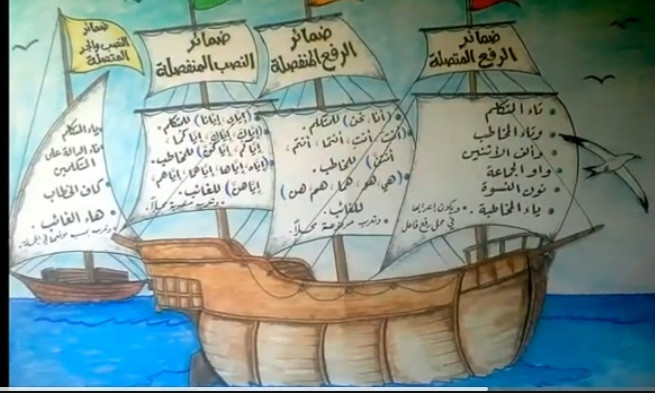 ضمائر
الرفع المتصلة
تاء المتكلم
وتاء المخاطب
وألف الاثنين
واو الجماعة
نون النسوة
ياء المخاطبة .
ويكون إعرابها
في محل رفع فاعل
ضمائر
الرفع المنفصلة
(أنا، نحن) للمتكلم.
(أنتَ، أنتِ، أنتما، أنتم،
أنتنّ) للمخاطب.
(هي، هو، هما، هم، هن)
للغائب.
وتعرب مرفوعة محلاً.
ضمائر
النصب المنفصلة
(إيايَ، إيانا) للمتكلم.
(إياكَ، إياكِ، إياكما،
إياكم، إياكنّ) للمخاطب.
(إياه، إياها، إياهما، إياهم
إياهنّ) للغائب.
وتعرب منصوبة محلاً.
ضمائر
النصب والجر
المتصلة
ياء المتكلم
ناء الدالة على
المتكلمين
كاف الخطاب
هاء الغائب.
وتعرب حسب موقعها في الجملة.